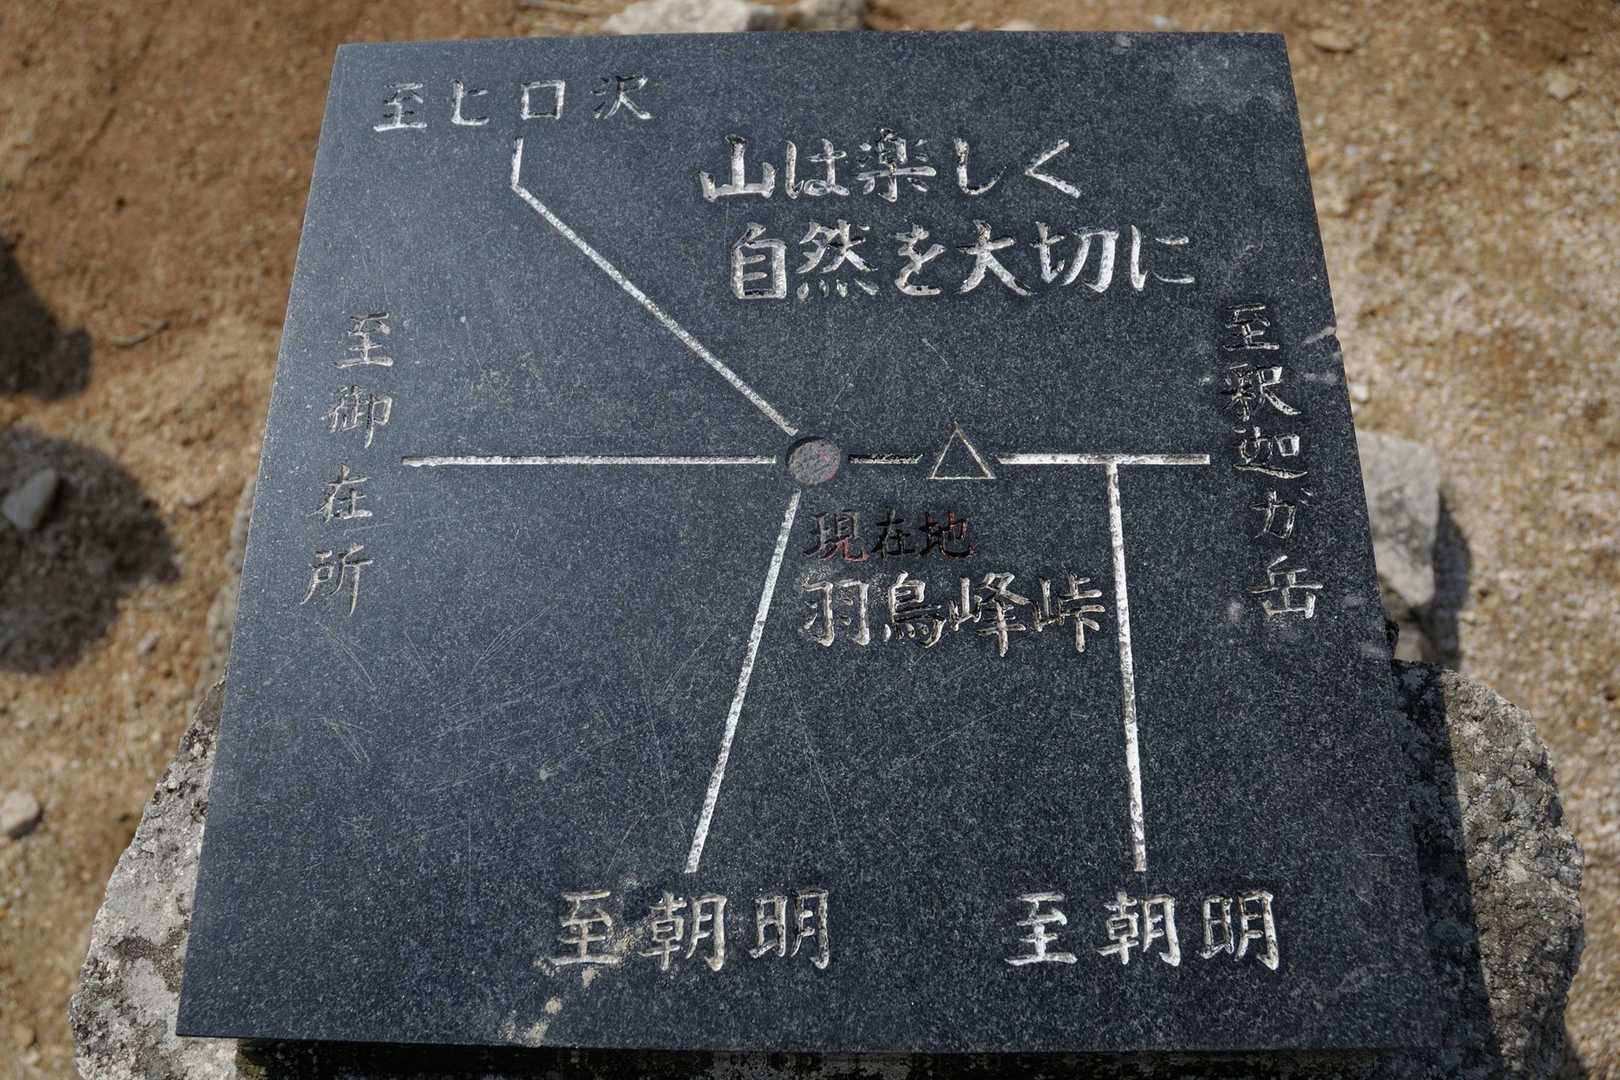 至ヒロ沢
山は楽しく
自然を大切に
至御在所
至釈迦ガ岳
現在地
羽鳥峰峠
至朝明
至朝明